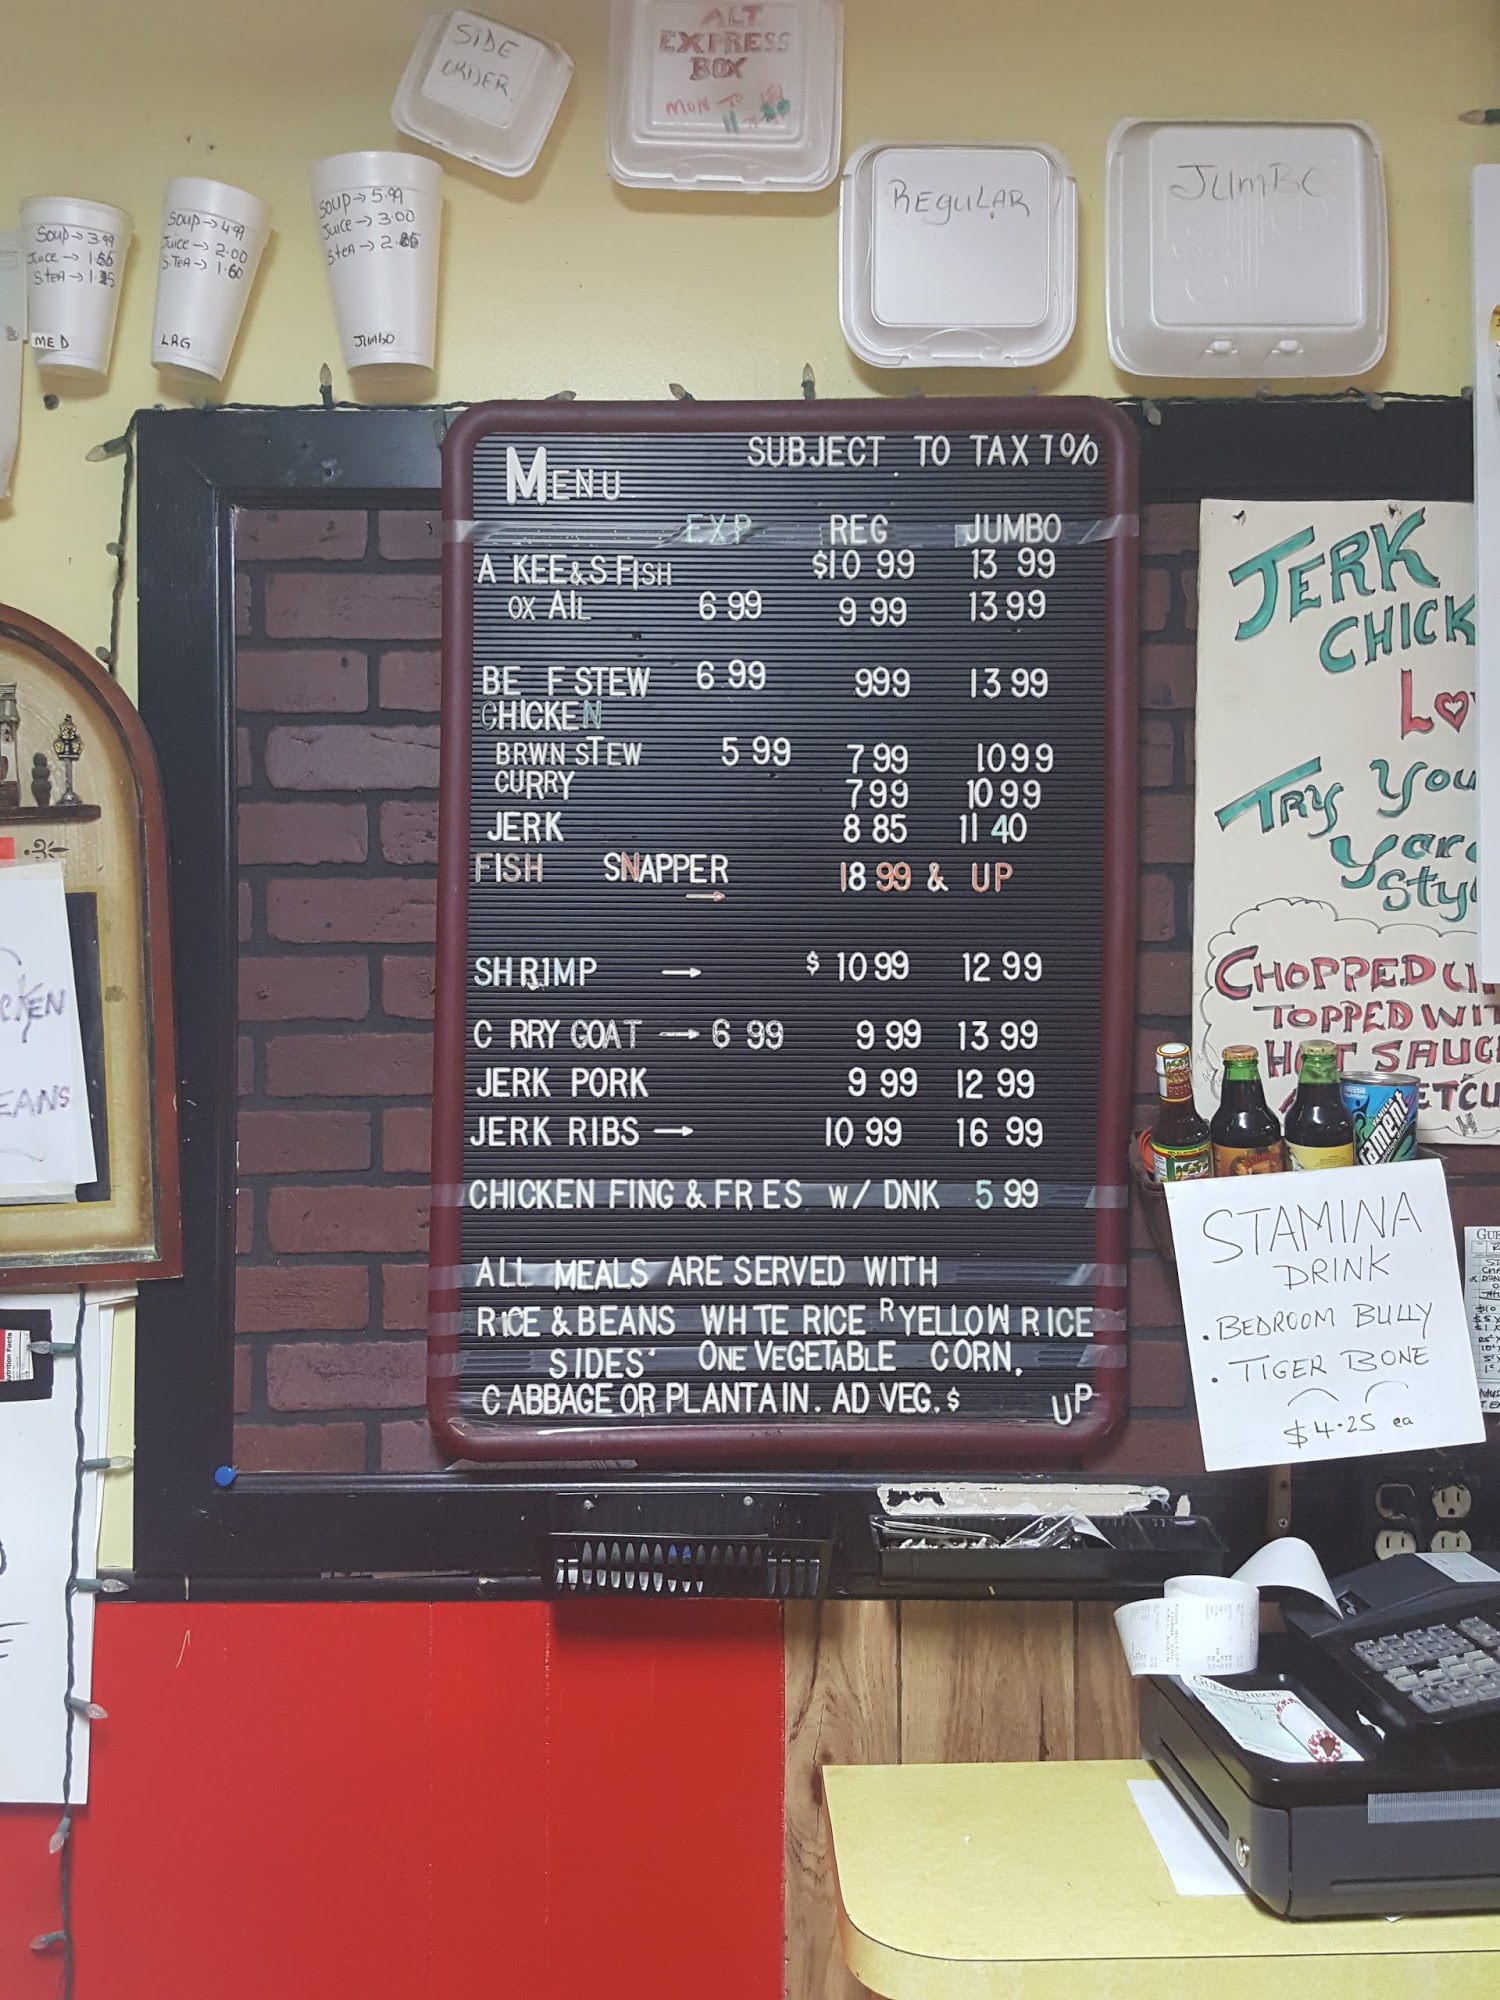 SIDE
ORDER.
ALT.
EXPRESS
BOX
MON TO
REGULAR
JUMBO
SOUP→3.99
Juice→
S.TEA→
MED
SOUP→4.99
Juice→2.00
S.TEA→1.60
LRG
SOUP→5.99
Juice→3.00
S.TEA→
JUMBO
MENU SUBJECT TO TAX 7%
EXP REG JUMBO
A KEE&S FISH $10 99 13 99
OX AIL 6 99 9 99 13 99
BE F STEW 6 99 999 13 99
CHICKEN
BRWN STEW 5 99 7 99 10 99
CURRY 7 99 10 99
JERK 8 85 11 40
FISH SNAPPER → 18 99 & UP
SHRIMP → $ 10 99 12 99
C RRY GOAT → 6 99 9 99 13 99
JERK PORK 9 99 12 99
JERK RIBS → 10 99 16 99
CHICKEN FING & FR ES W/ DNK 5 99
ALL MEALS ARE SERVED WITH
RICE & BEANS WHITE RICE R YELLOW RICE
SIDES' ONE VEGETABLE CORN.
CABBAGE OR PLANTAIN. AD VEG. $ UP
JERK
CHICK
LO
TRY YOU
YAR
STY
CHOPPED U
TOPPED WIT
HOT SAUC
ETCU
STAMINA
DRINK
• BEDROOM BULLY
• TIGER BONE
$4.25 ea
CKEN
EANS
Nutrition Facts